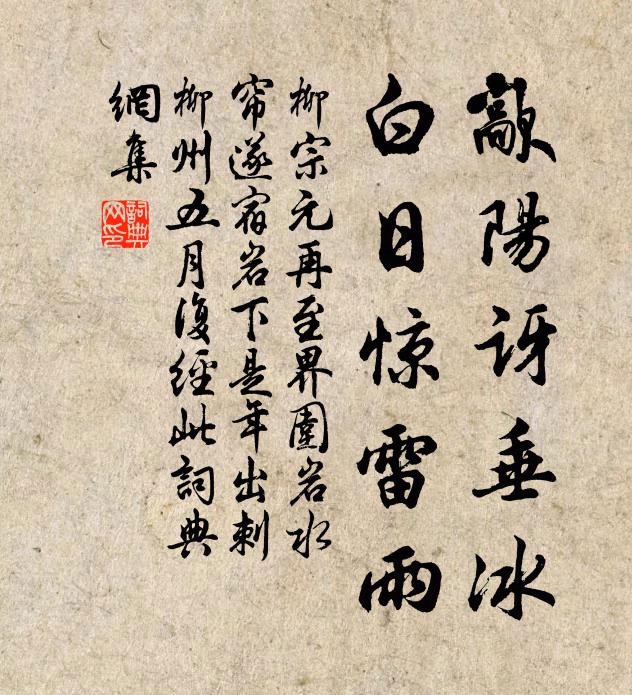 歊陽訝垂冰
白日惊雷雨
柳宗元再至界圍岩水
帘遂宿岩下是年出刺
柳州五月復經此詞典
網集
詞典
网印